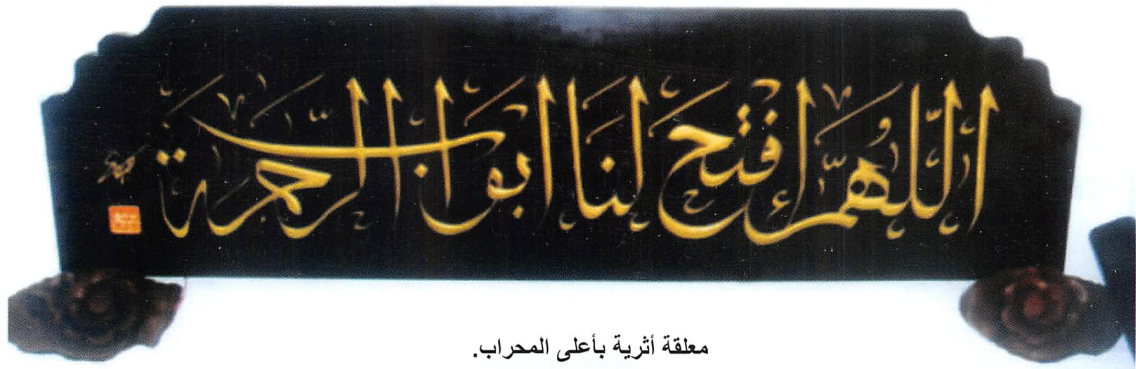 اللّٰهُمَّ إفتَح لَنَا ابوَاب الرَّحمَة
معلقة أثرية بأعلى المحراب.